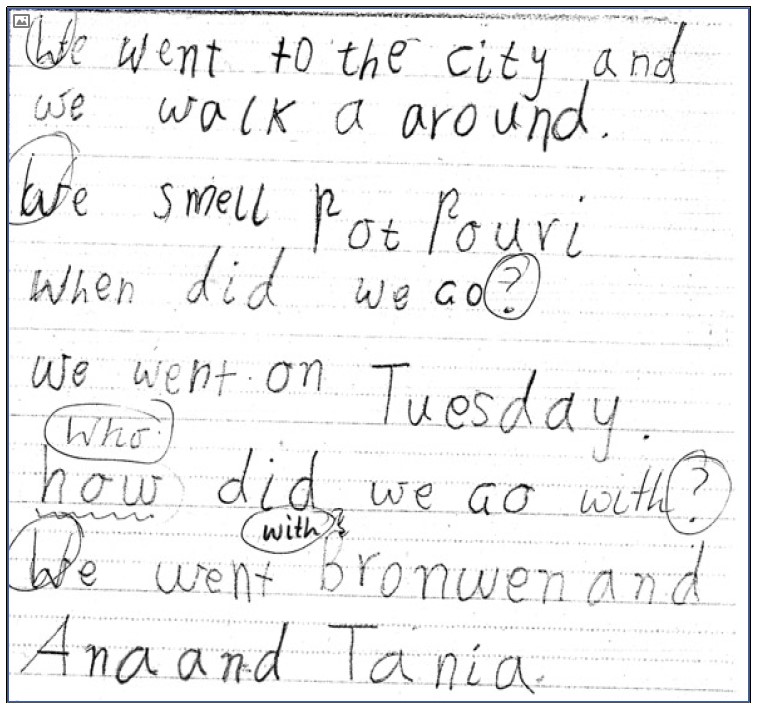 We went to the city and
we walk a around.
We smell Pot Pouri
When did we go?
we went on Tuesday.
Who
how did we go with?
with
We went Bronwen and
Ana and Tania.